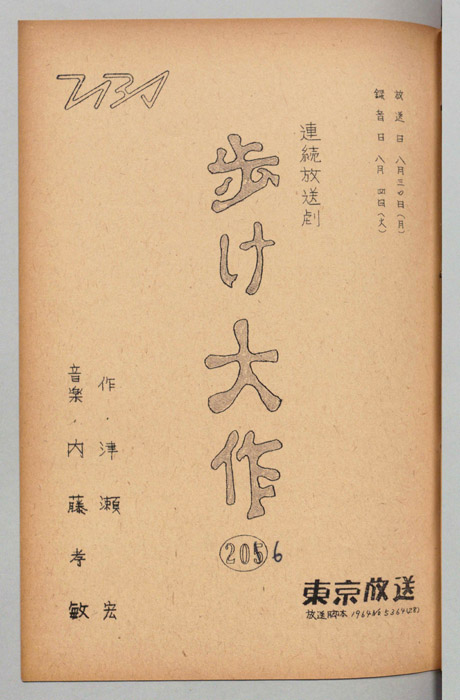 TBS
放送日 八月三〇日(月)
録音日 八月 四日(火)
連続放送劇
歩け大作
2056
作・津瀬 宏
音楽・内藤孝敏
東京放送
放送脚本